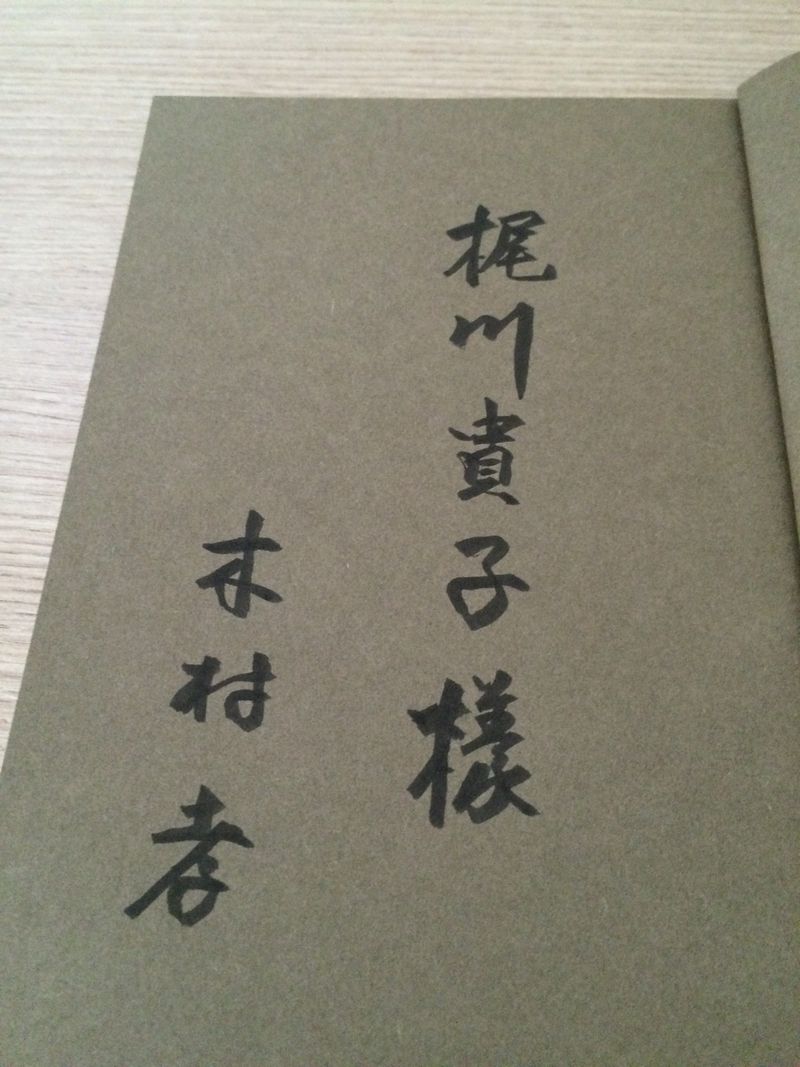 梶川貴子様
木村孝